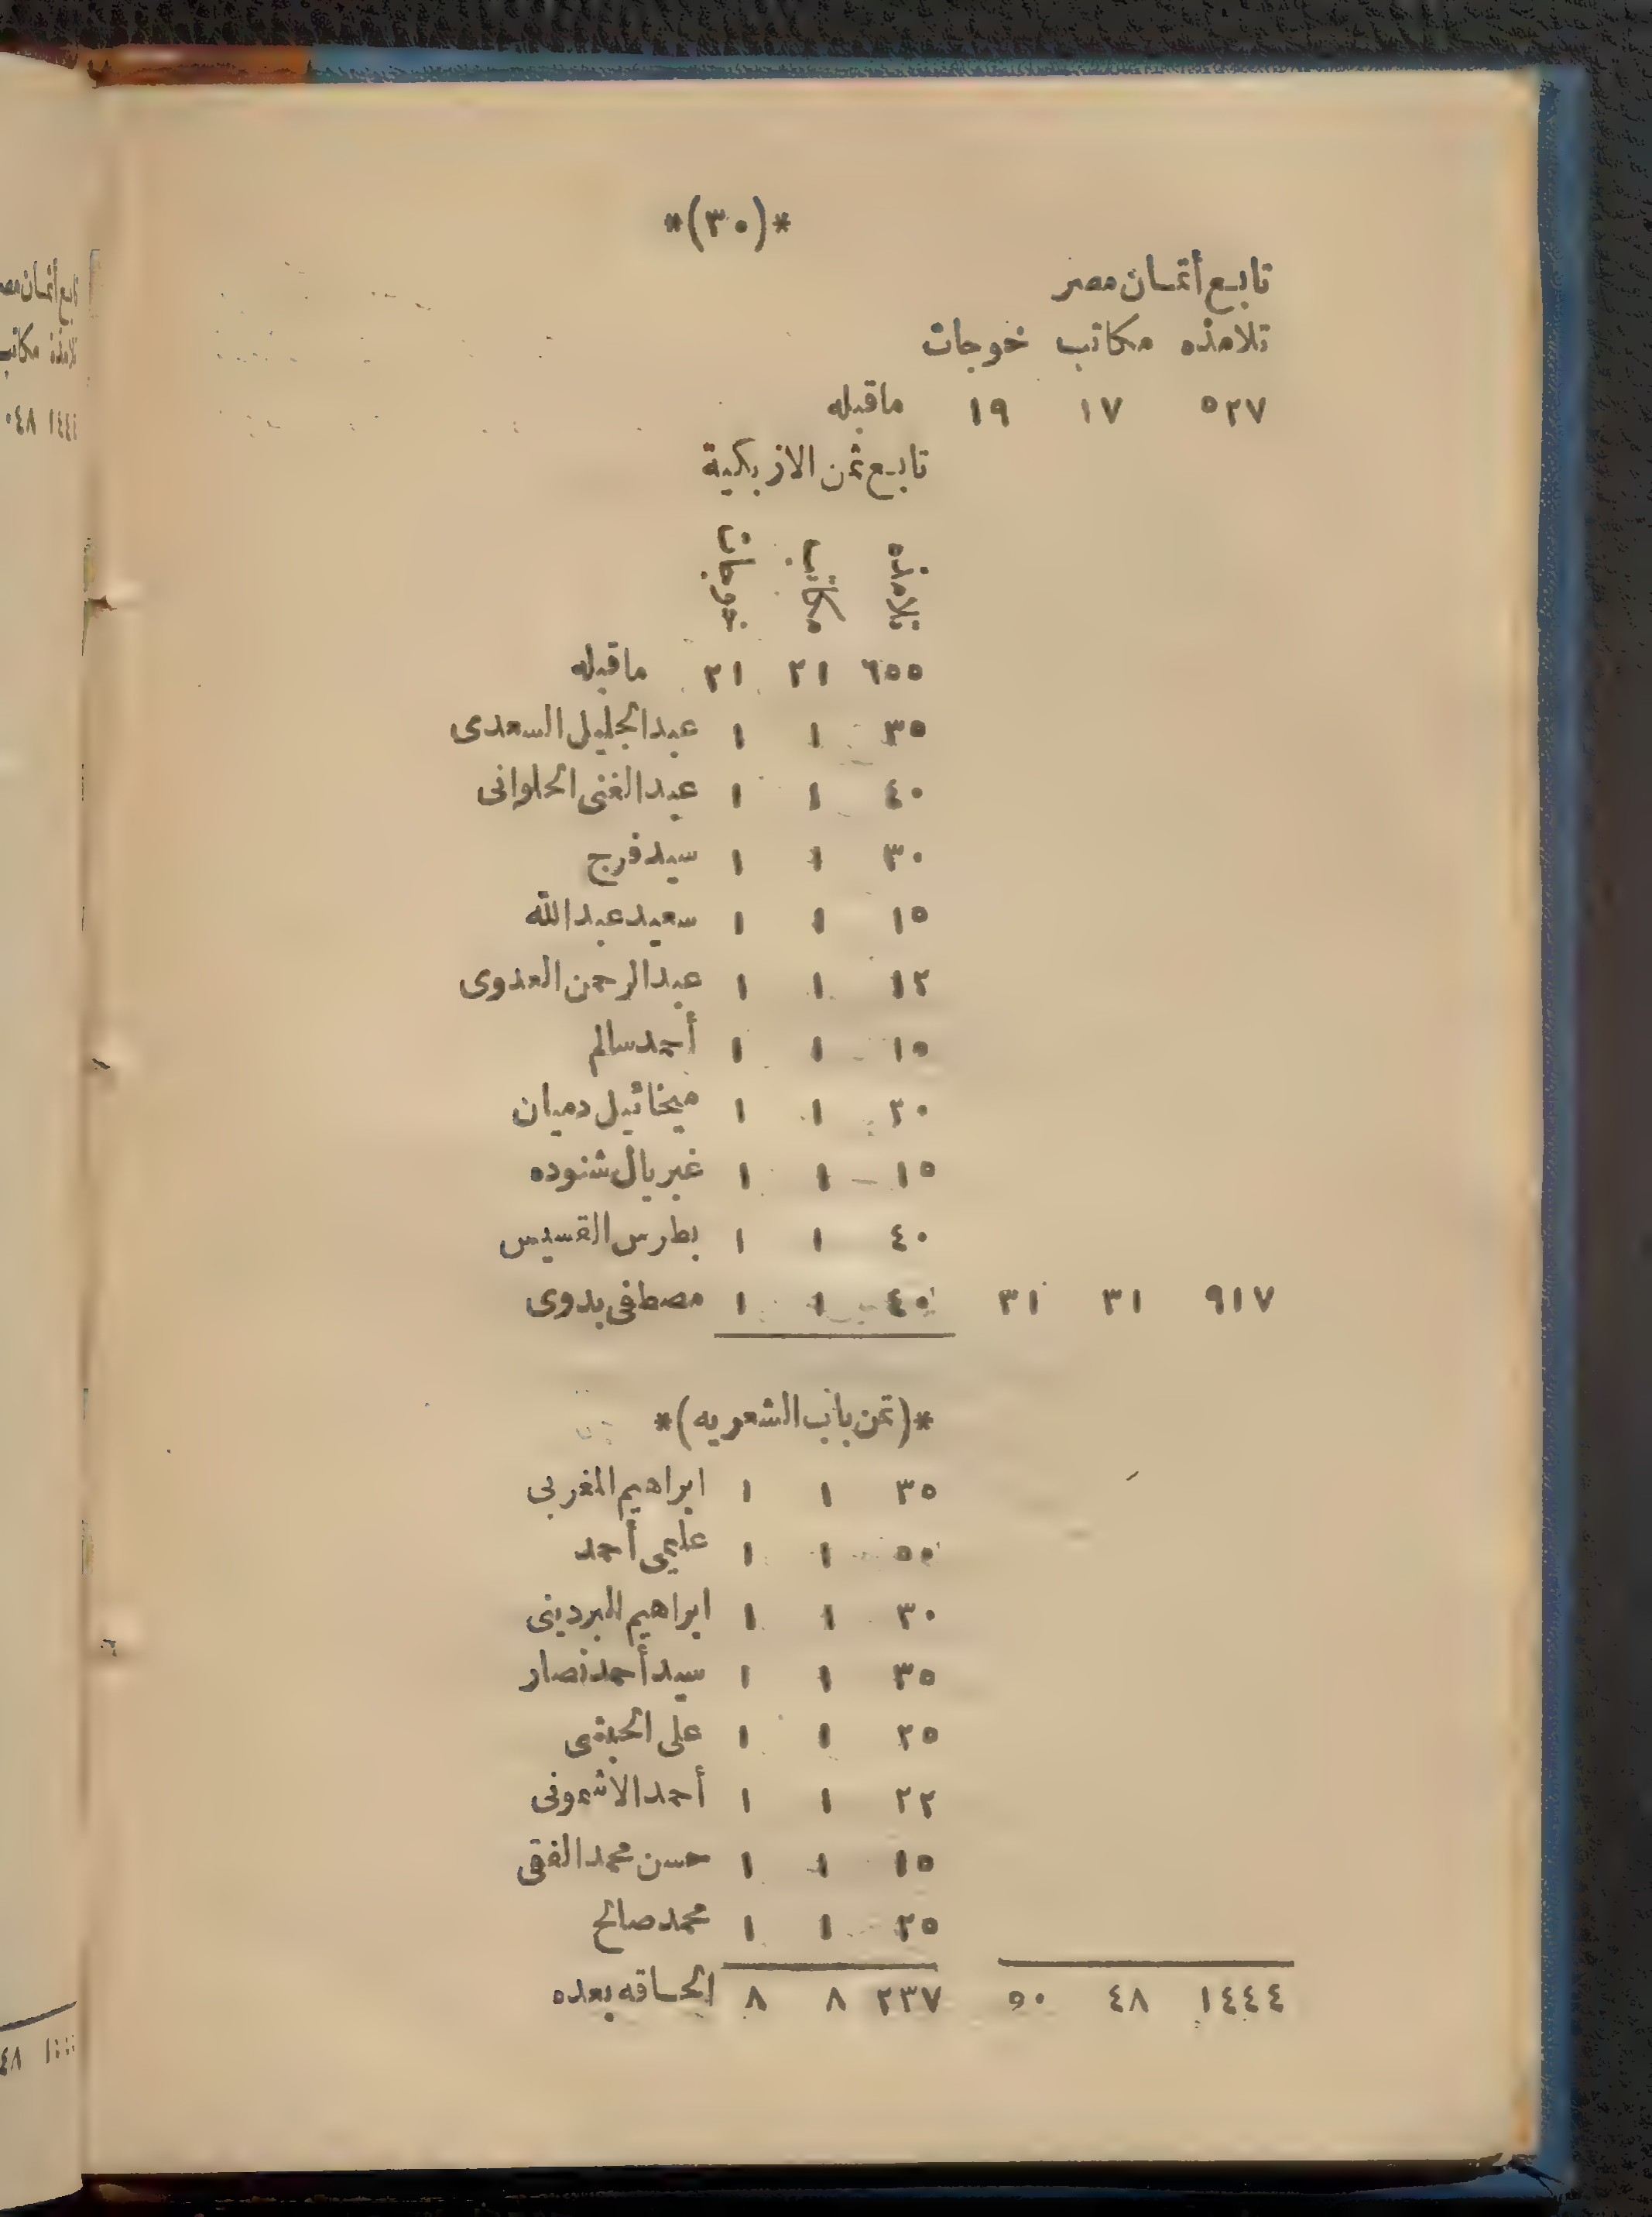 *(٣٠)*
تابع أثمان مصر
تلامذه مكاتب خوجات
٥٢٧ ١٧ ١٩ ماقبله
تابع ثمن الازبكية
تلامذه مكاتب خوجات
٦٥٥ ٢١ ٢١ ماقبله
٣٥ ١ ١ عبد الجليل السعدى
٤٠ ١ ١ عبد الغنى الحلوانى
٣٠ ١ ١ سيد فرج
١٥ ١ ١ سعيد عبد الله
١٢ ١ ١ عبد الرحمن العدوى
١٥ ١ ١ أحمد سالم
٢٠ ١ ١ ميخائيل دميان
١٥ ١ ١ غبريال شنوده
٤٠ ١ ١ بطرس القسيس
٩١٧ ٣١ ٣١ ٤٠ ١ ١ مصطفى بدوى
*(ثمن باب الشعريه)*
٣٥ ١ ١ ابراهيم المغربى
٥٠ ١ ١ عليمى أحمد
٣٠ ١ ١ ابراهيم البردينى
٣٥ ١ ١ سيد أحمد نصار
٢٥ ١ ١ على الحبشى
٢٢ ١ ١ أحمد الاشمونى
١٥ ١ ١ حسن محمد الفقى
٢٥ ١ ١ محمد صالح
١٤٤٤ ٤٨ ٥٠ ٢٣٧ ٨ ٨ الحساقه بعده